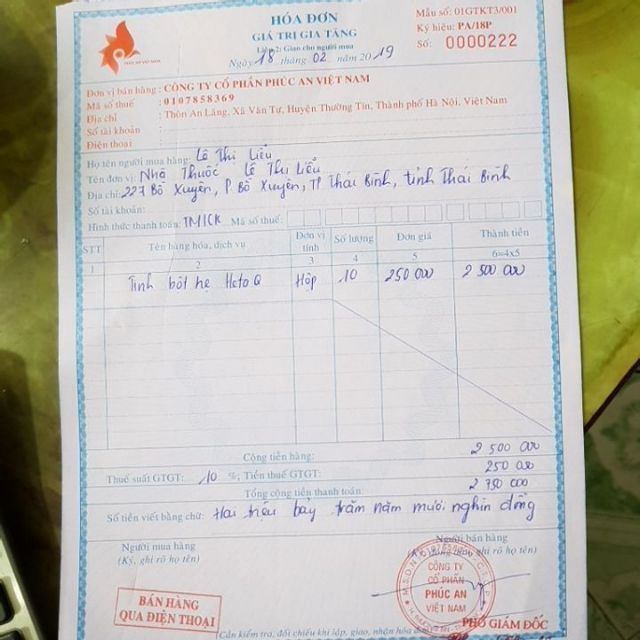 HÓA ĐƠN
GIÁ TRỊ GIA TĂNG
Liên 2: Giao cho người mua
Ngày 18 tháng 02 năm 2019
Mẫu số: 01GTKT3/001
Ký hiệu: PA/18P
Số: 0000222
Đơn vị bán hàng: CÔNG TY CỔ PHẦN PHÚC AN VIỆT NAM
Mã số thuế : 0107858369
Địa chỉ : Thôn An Lãng, Xã Văn Tự, Huyện Thường Tín, Thành phố Hà Nội, Việt Nam
Số tài khoản :
Điện thoại :
Họ tên người mua hàng: Lê Thị Liễu
Tên đơn vị: Nhà Thuốc Lê Thị Liễu
Địa chỉ: 227 Bồ Xuyên, P. Bồ Xuyên, TP Thái Bình, tỉnh Thái Bình
Số tài khoản:
Hình thức thanh toán: TM/CK Mã số thuế:
STT Tên hàng hóa, dịch vụ Đơn vị tính Số lượng Đơn giá Thành tiền
1 2 3 4 5 6=4x5
Tinh bột nghệ Hộp 10 250 000 2 500 000
Cộng tiền hàng: 2 500 000
Thuế suất GTGT: 10 %; Tiền thuế GTGT: 250 000
Tổng cộng tiền thanh toán: 2 750 000
Số tiền viết bằng chữ: Hai triệu bảy trăm năm mươi nghìn đồng
Người mua hàng
(Ký, ghi rõ họ tên)
Người bán hàng
ghi rõ họ tên)
BÁN HÀNG
QUA ĐIỆN THOẠI
CÔNG TY
CỔ PHẦN
PHÚC AN
VIỆT NAM
PHÓ GIÁM ĐỐC
(Cần kiểm tra, đối chiếu khi lập, giao, nhận hóa đơn)